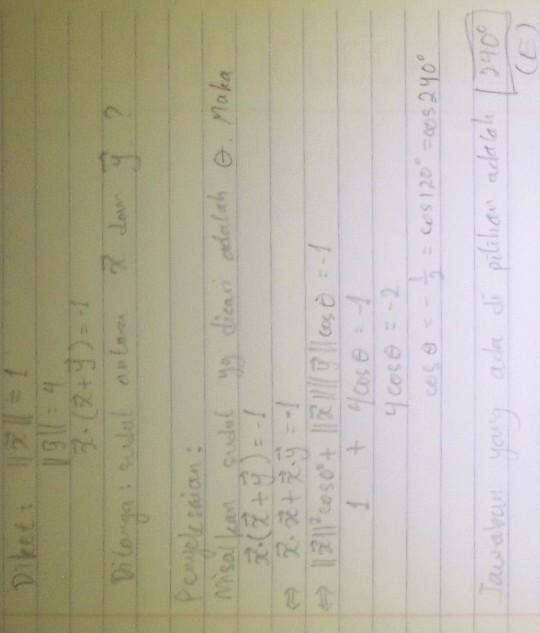 Diket : ||x⃗|| = 1
||y⃗|| = 4
x⃗·(x⃗+y⃗) = -1
Ditanya : sudut antara x⃗ dan y⃗ ?
Penyelesaian :
Misalkan sudut yg dicari adalah θ. Maka
x⃗·(x⃗+y⃗) = -1
⇔ x⃗·x⃗ + x⃗·y⃗ = -1
⇔ ||x⃗||² cos 0° + ||x⃗|| ||y⃗|| cos θ = -1
1 + 4 cos θ = -1
4 cos θ = -2
cos θ = -1/2 = cos 120° = cos 240°
Jawaban yang ada di pilihan adalah 240°
(E)